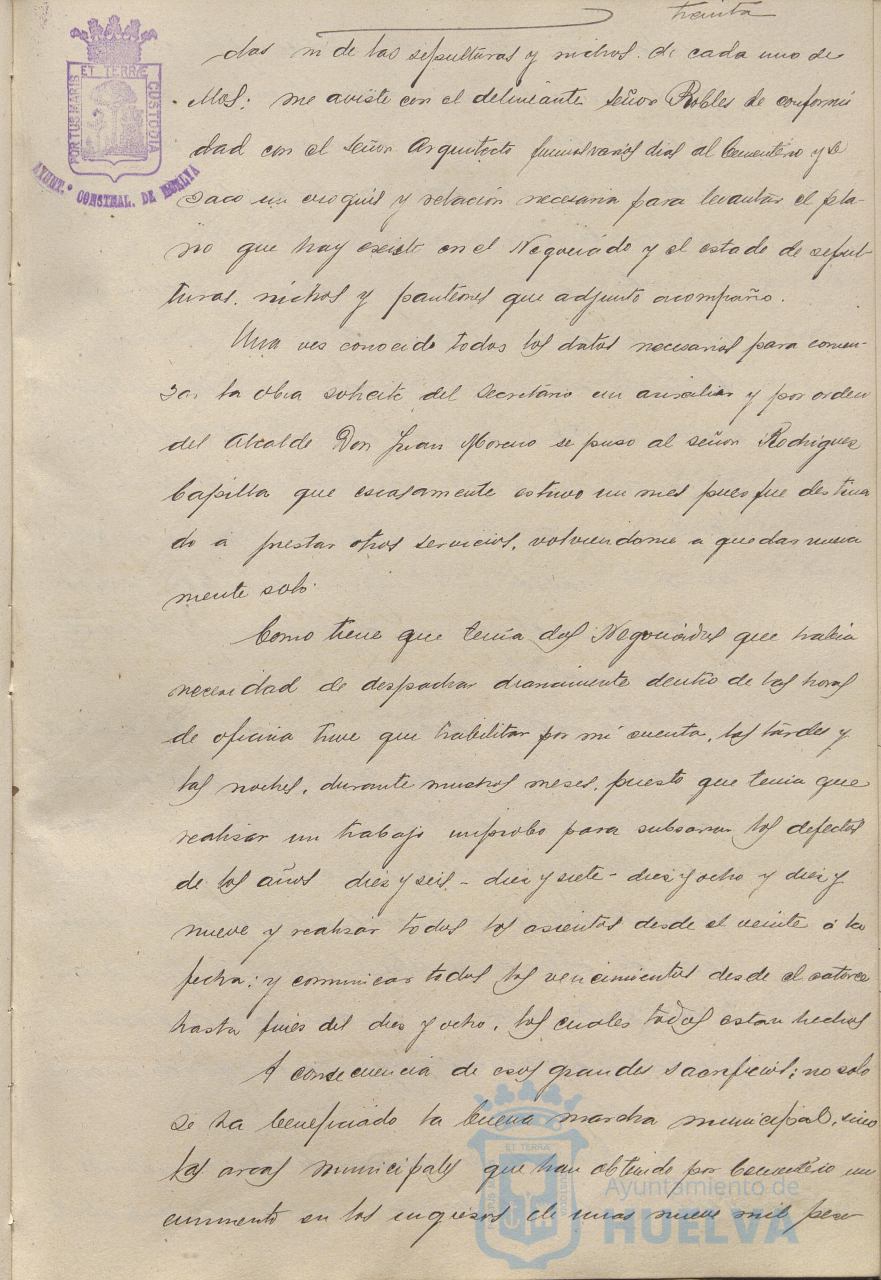 treinta
das ni de las sepulturas y nichos de cada uno de
ellos; me aviste con el delineante señor Robles de conformi
dad con el señor Arquitecto fuimos varios dias al Cementerio y se
saco un croquis y relación necesaria para levantar el pla-
no que hay existe en el Negociado y el estado de sepul-
turas, nichos y panteones que adjunto acompaño.
Una ves conocido todos los datos necesarios para comen-
zar la obra solicite del Secretario un auxiliar y por orden
del Alcalde Don Juan Moreno se puso al señor Rodriguez
Capilla que escasamente estuvo un mes pues fue destina
do a prestar otros servicios, volviendome a quedar nueva
mente solo.
Como tiene que tenia dos Negociados que habia
necesidad de despachar diariamente dentro de las horas
de oficina tuve que habilitar por mi cuenta, las tardes y
las noches, durante muchos meses, puesto que tenia que
realizar un trabajo improbo para subsanar los defectos
de los años diez y seis - diez y siete - diez y ocho y diez y
nueve y realizar todos los asientos desde el veinte á la
fecha; y comunicar todos los vencimientos desde el catorce
hasta fines del dies y ocho, los cuales todos estan hechos
A consecuencia de esos grandes sacrificios; no solo
se ha beneficiado la buena marcha municipal, sino
las arcas municipales que han obtenido por Cementerio un
aumento en los ingresos de unas nueve mil pese
PORTUS MARIS ET TERRÆ CUSTODIA
AYUNT.º CONSTNAL. DE HUELVA
Ayuntamiento de
HUELVA